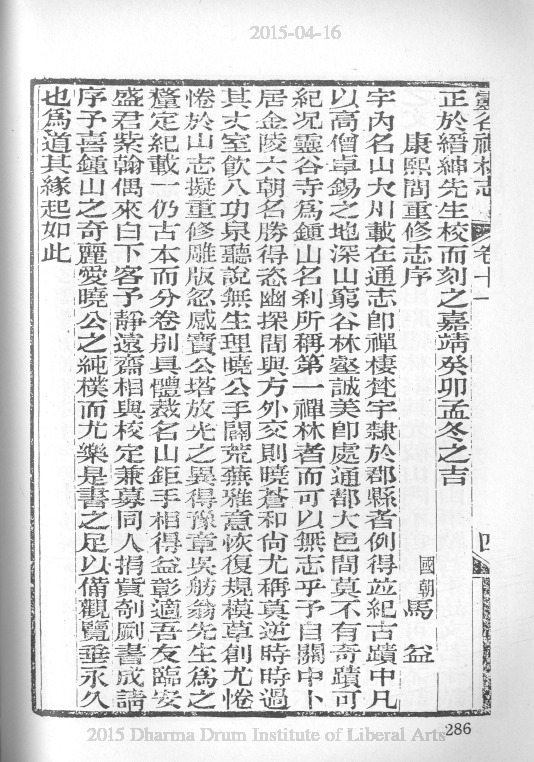 2015-04-16
靈谷禪林志 卷十一 四
正於縉紳先生校而刻之嘉靖癸卯孟冬之吉
康熙間重修志序
國朝馬益
宇內名山大川載在通志卽禪棲梵宇隸於郡縣者例得竝紀古蹟中凡
以高僧卓錫之地深山窮谷林壑誠美卽處通都大邑間莫不有奇蹟可
紀况靈谷寺爲鍾山名刹所稱第一禪林者而可以無志乎予自關中卜
居金陵六朝名勝得恣幽探間與方外交則曉蒼和尙尤稱莫逆時時過
其丈室飮八功泉聽說無生理曉公手闢荒蕪雅意恢復規模草創尤惓
惓於山志擬重修雕版忽感寶公塔放光之異得豫章吳舫翁先生爲之
釐定紀載一仍古本而分卷別具體裁名山鉅手相得益彰適吾友臨安
盛君紫翰偶來白下客予靜遠齋相與校定兼募同人捐貲剞劂書成請
序予喜鍾山之奇麗愛曉公之純樸而尤樂是書之足以備觀覽垂永久
也爲道其緣起如此
286
2015 Dharma Drum Institute of Liberal Arts